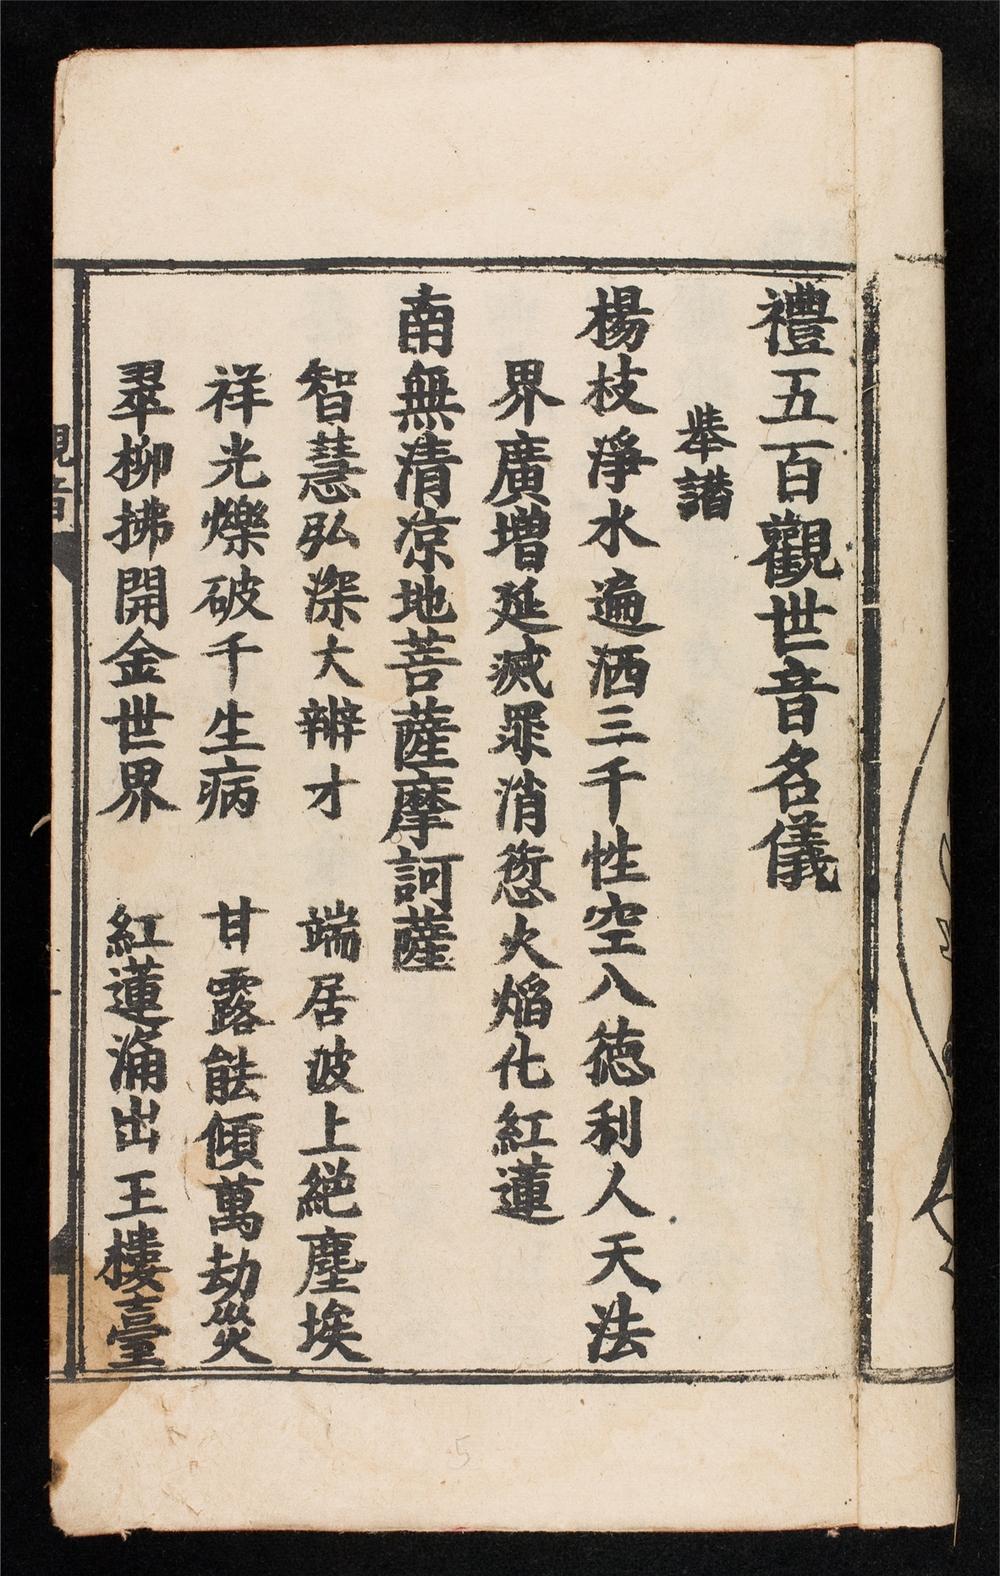 禮五百觀世音名儀
举讃
楊枝淨水遍洒三千性空八德利人天法
界廣增延滅罪消愆火焰化紅蓮
南無清凉地菩薩摩訶薩
智慧弘深大辯才　端居波上絕塵埃
祥光爍破千生病　甘露能傾萬劫災
翠柳拂開金世界　紅蓮涌出王樓臺
觀音